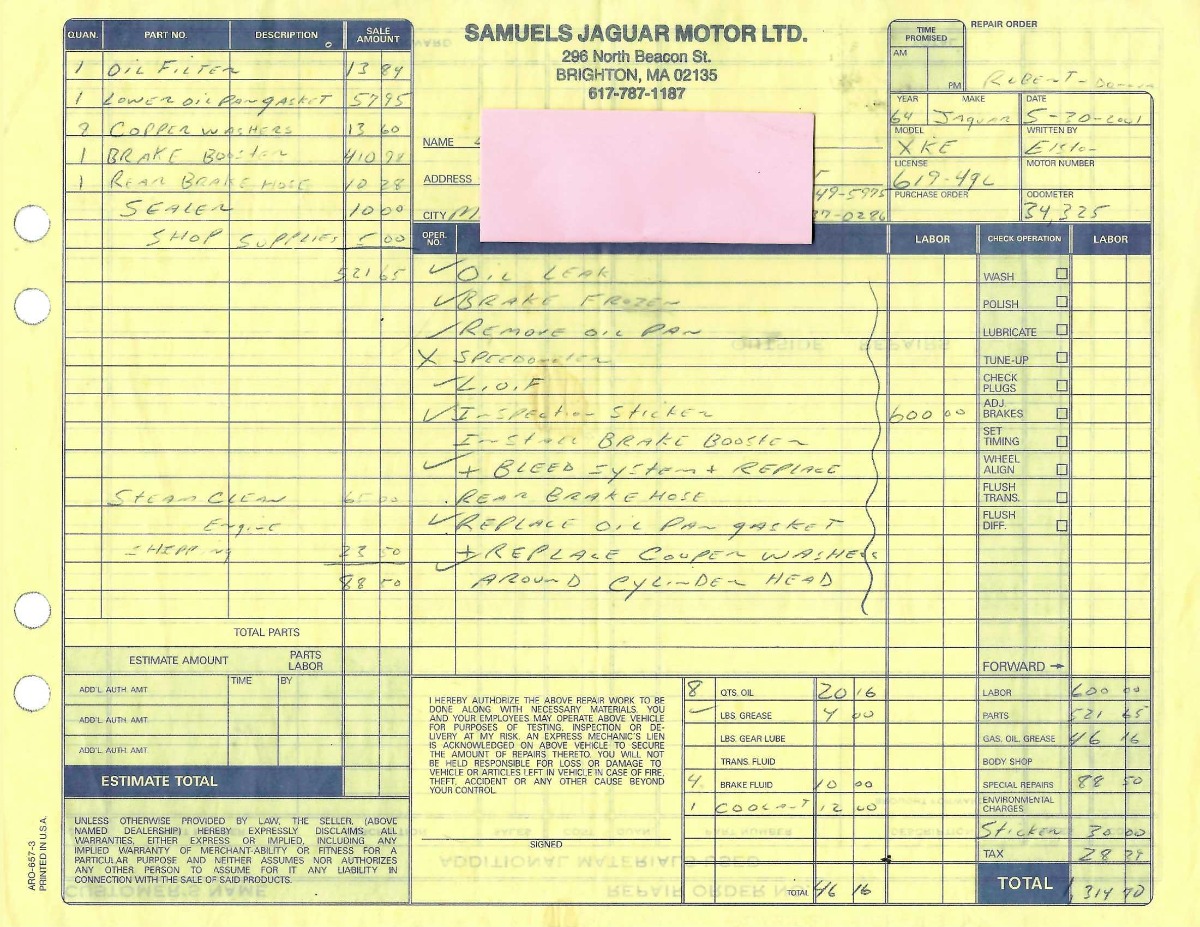 SAMUELS JAGUAR MOTOR LTD.
296 North Beacon St.
BRIGHTON, MA 02135
617-787-1187
REPAIR ORDER
TIME PROMISED
AM
PM
ROBERT
YEAR MAKE DATE
64 JAGUAR 5-30-2001
MODEL WRITTEN BY
XKE
LICENSE MOTOR NUMBER
619-49L
PURCHASE ORDER ODOMETER
34,325
NAME
ADDRESS
49-5975
CITY M
37-0286
QUAN. PART NO. DESCRIPTION SALE AMOUNT
1 OIL FILTER 13 84
1 LOWER OIL PAN GASKET 57 95
COPPER WASHERS 13 60
1 BRAKE BOOSTER 410 98
1 REAR BRAKE HOSE 10 28
SEALER 10 00
SHOP SUPPLIES 5 00
521 65
STEAM CLEAN 65 00
Engine
SHIPPING 23 50
88 50
TOTAL PARTS
ESTIMATE AMOUNT PARTS LABOR
TIME BY
ADD'L AUTH. AMT.
ADD'L AUTH. AMT.
ADD'L AUTH. AMT.
ESTIMATE TOTAL
UNLESS OTHERWISE PROVIDED BY LAW, THE SELLER, (ABOVE
NAMED DEALERSHIP) HEREBY EXPRESSLY DISCLAIMS ALL
WARRANTIES, EITHER EXPRESS OR IMPLIED, INCLUDING ANY
IMPLIED WARRANTY OF MERCHANT-ABILITY OR FITNESS FOR A
PARTICULAR PURPOSE AND NEITHER ASSUMES NOR AUTHORIZES
ANY OTHER PERSON TO ASSUME FOR IT ANY LIABILITY IN
CONNECTION WITH THE SALE OF SAID PRODUCTS.
ARO-657-3
PRINTED IN U.S.A.
OPER. NO. LABOR CHECK OPERATION LABOR
✓ OIL LEAK
✓ BRAKE FROZEN
✓ REMOVE OIL PAN
X SPEEDOMETER
✓ L.O.F
✓ INSPECTION STICKER 600 00
INSTALL BRAKE BOOSTER
✓ + BLEED SYSTEM + REPLACE
REAR BRAKE HOSE
✓ REPLACE OIL PAN GASKET
+ REPLACE COUPER WASHERS
✓ AROUND CYLINDER HEAD
WASH
POLISH
LUBRICATE
TUNE-UP
CHECK PLUGS
ADJ BRAKES
SET TIMING
WHEEL ALIGN
FLUSH TRANS.
FLUSH DIFF.
FORWARD →
I HEREBY AUTHORIZE THE ABOVE REPAIR WORK TO BE
DONE ALONG WITH NECESSARY MATERIALS. YOU
AND YOUR EMPLOYEES MAY OPERATE ABOVE VEHICLE
FOR PURPOSES OF TESTING, INSPECTION OR DE-
LIVERY AT MY RISK. AN EXPRESS MECHANIC'S LIEN
IS ACKNOWLEDGED ON ABOVE VEHICLE TO SECURE
THE AMOUNT OF REPAIRS THERETO. YOU WILL NOT
BE HELD RESPONSIBLE FOR LOSS OR DAMAGE TO
VEHICLE OR ARTICLES LEFT IN VEHICLE IN CASE OF FIRE,
THEFT, ACCIDENT OR ANY OTHER CAUSE BEYOND
YOUR CONTROL.
SIGNED
8 QTS. OIL 20 16
✓ LBS. GREASE 4 00
LBS. GEAR LUBE
TRANS. FLUID
4. BRAKE FLUID 10 00
1 COOLANT 12 00
TOTAL 46 16
LABOR 600 00
PARTS 521 65
GAS. OIL. GREASE 46 16
BODY SHOP
SPECIAL REPAIRS 88 50
ENVIRONMENTAL CHARGES
STICKER 30.00
TAX 28 39
TOTAL 1,314 70